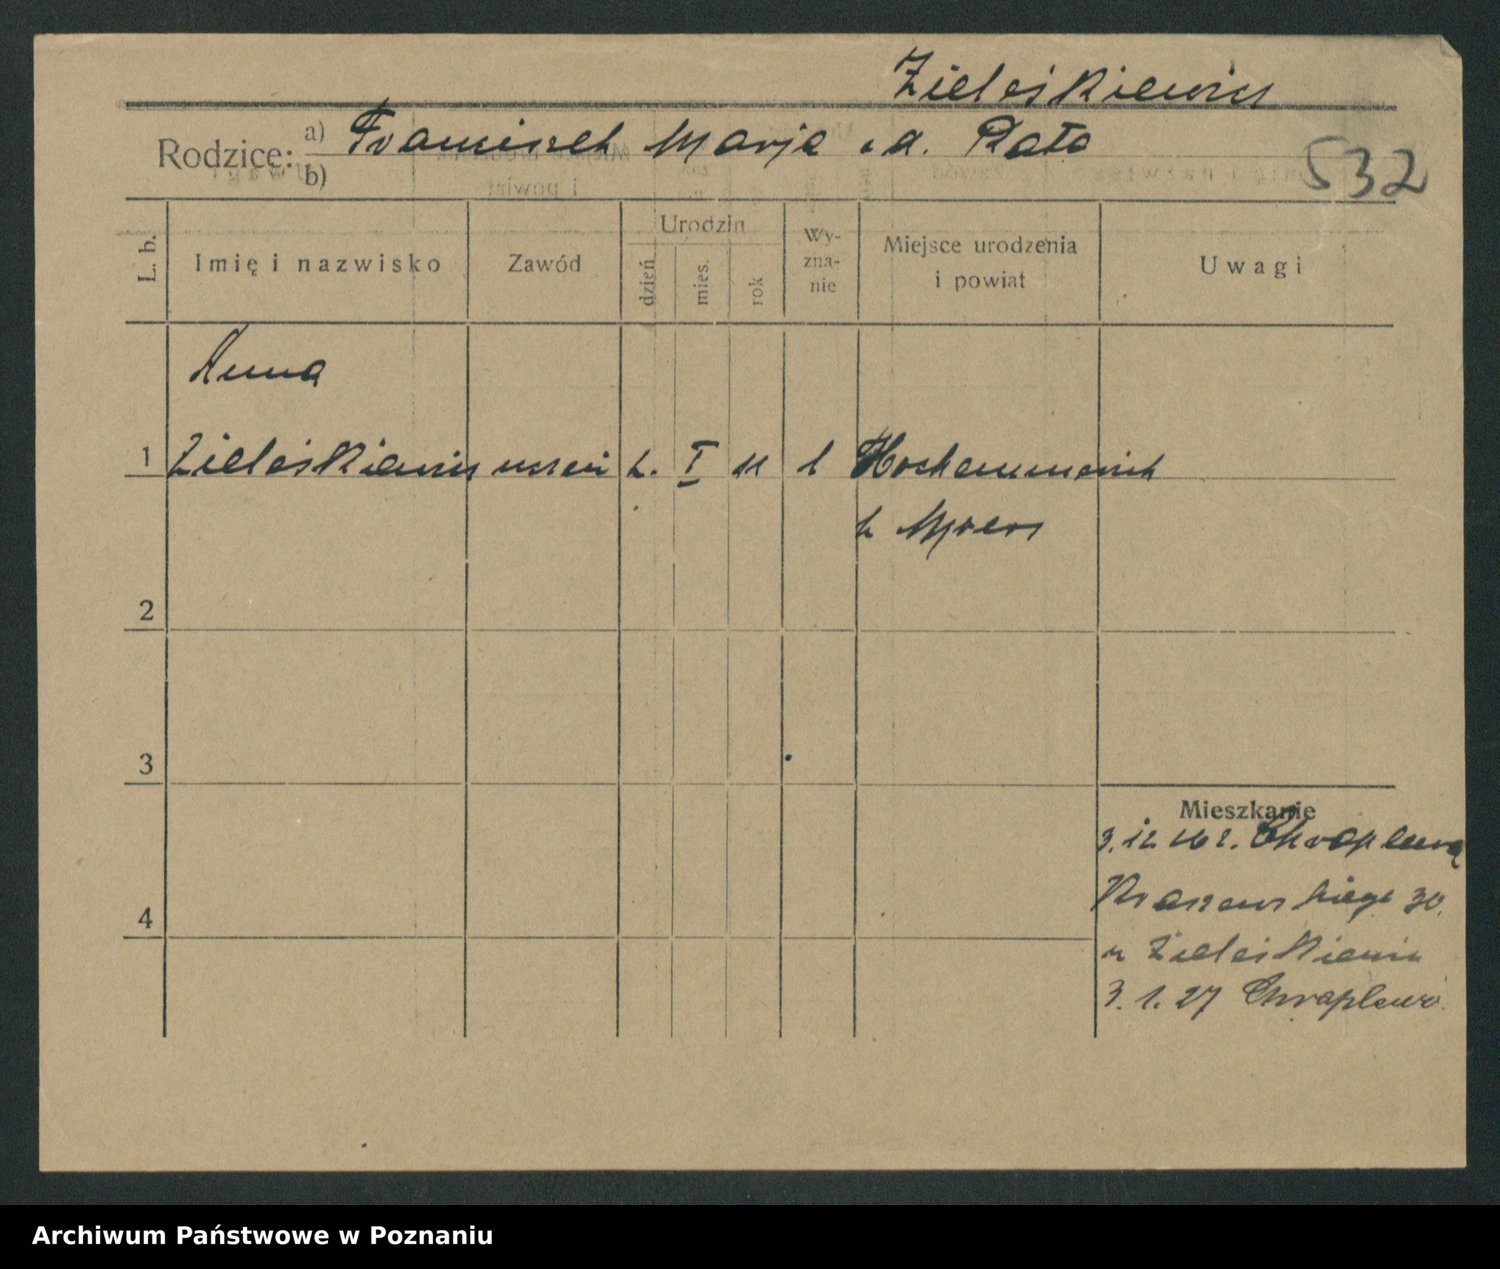 Zieleśkiewicz
Rodzice: a) Franciszek Marja z d. Rata
b)
532
L. b.
Imię i nazwisko
Zawód
Urodzin
dzień
mies.
rok
Wy-
zna-
nie
Miejsce urodzenia
i powiat
Uwagi
Anna
1 Zieleśkiewicz uczeń 2. I 11 k Hochemmerich
k Moers
2
3
4
Mieszkanie
3. 12 26 z. Chraplewa
Kraszewskiego 30.
u Zieleśkiewicz
3. 1. 27 Chraplewo.
Archiwum Państwowe w Poznaniu